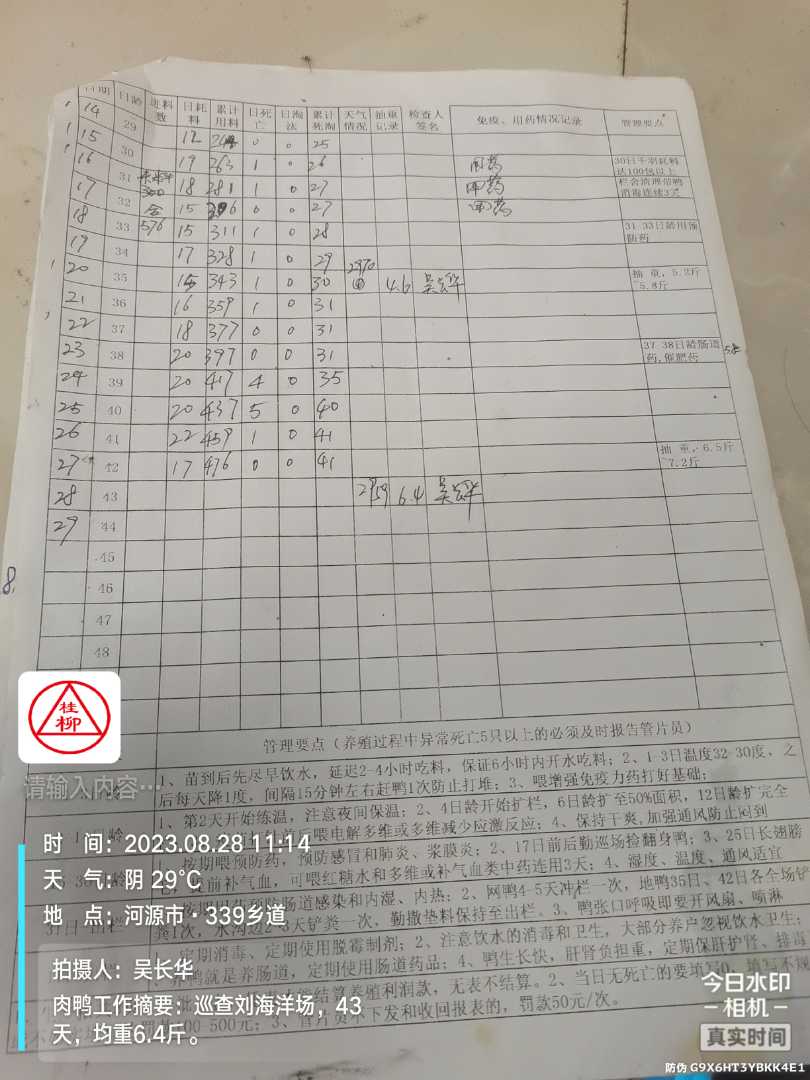 日期 日龄 进料数 日耗料 累计用料 日死亡 日淘汰 累计死淘 天气情况 抽重记录 检查人签名 免疫、用药情况记录 管理要点
14 29 12 0 0 25
15 30 19 263 1 0 26 30日千羽耗料达100包以上
16 31 18 281 1 0 27 栏舍清理带鸭消毒连续3天
17 32 300 15 0 0 27
18 33 576 15 311 1 0 28 31-33日龄用预防药
19 34 17 328 1 0 29 2970
20 35 15 343 1 0 30 4.6 抽重,5.2斤~5.8斤
21 36 16 359 1 0 31
22 37 18 377 0 0 31
23 38 20 397 0 0 31 37-38日龄肠道药,催肥药
24 39 20 417 4 0 35
25 40 20 437 5 0 40
26 41 22 459 1 0 41
27 42 17 476 0 0 41 抽重,6.5斤~7.2斤
28 43 6.4
29 44
45
46
47
48
8.
桂柳
管理要点(养殖过程中异常死亡5只以上的必须及时报告管片员)
1、苗到后先尽早饮水,延迟2-4小时吃料,保证6小时内开水吃料;2、1-3日温度32-30度,之
后每天降1度,间隔15分钟左右赶鸭1次防止打堆;3、喂增强免疫力药打好基础;
请输入内容…
1、第2天开始练温,注意夜间保温;2、4日龄开始扩栏,6日龄扩至50%面积,12日龄扩完全
后喂电解多维或多维减少应激反应;4、保持干爽,加强通风防止闷到
1、按期喂预防药,预防感冒和肺炎、浆膜炎;2、17日前后勤巡场捡翻身鸭;3、25日长翅膀
提前补气血,可喂红糖水和多维或补气血类中药连用3天;4、湿度、温度、通风适宜
预防肠道感染和内湿、内热;2、网鸭4-5天冲栏一次,地鸭35日、42日各全场铲
粪1次,水沟边2-3天铲粪一次,勤撒垫料保持至出栏。3、鸭张口呼吸即要开风扇、喷淋
定期消毒、定期使用脱霉制剂;2、注意饮水的消毒和卫生,大部分养户忽视饮水卫生;
养鸭就是养肠道,定期使用肠道药品;4、鸭生长快,肝肾负担重,定期保肝护肾、排毒
结算养殖利润款,无表不结算。2、当日无死亡的要填写0,填写不规
500元;3、管片员不下发和收回报表的,罚款50元/次。
时 间:2023.08.28 11:14
天 气:阴 29℃
地 点:河源市·339乡道
拍摄人:吴长华
肉鸭工作摘要:巡查刘海洋场,43
天,均重6.4斤。
今日水印
-相机-
真实时间
防伪 G9X6HT3YBKK4E1